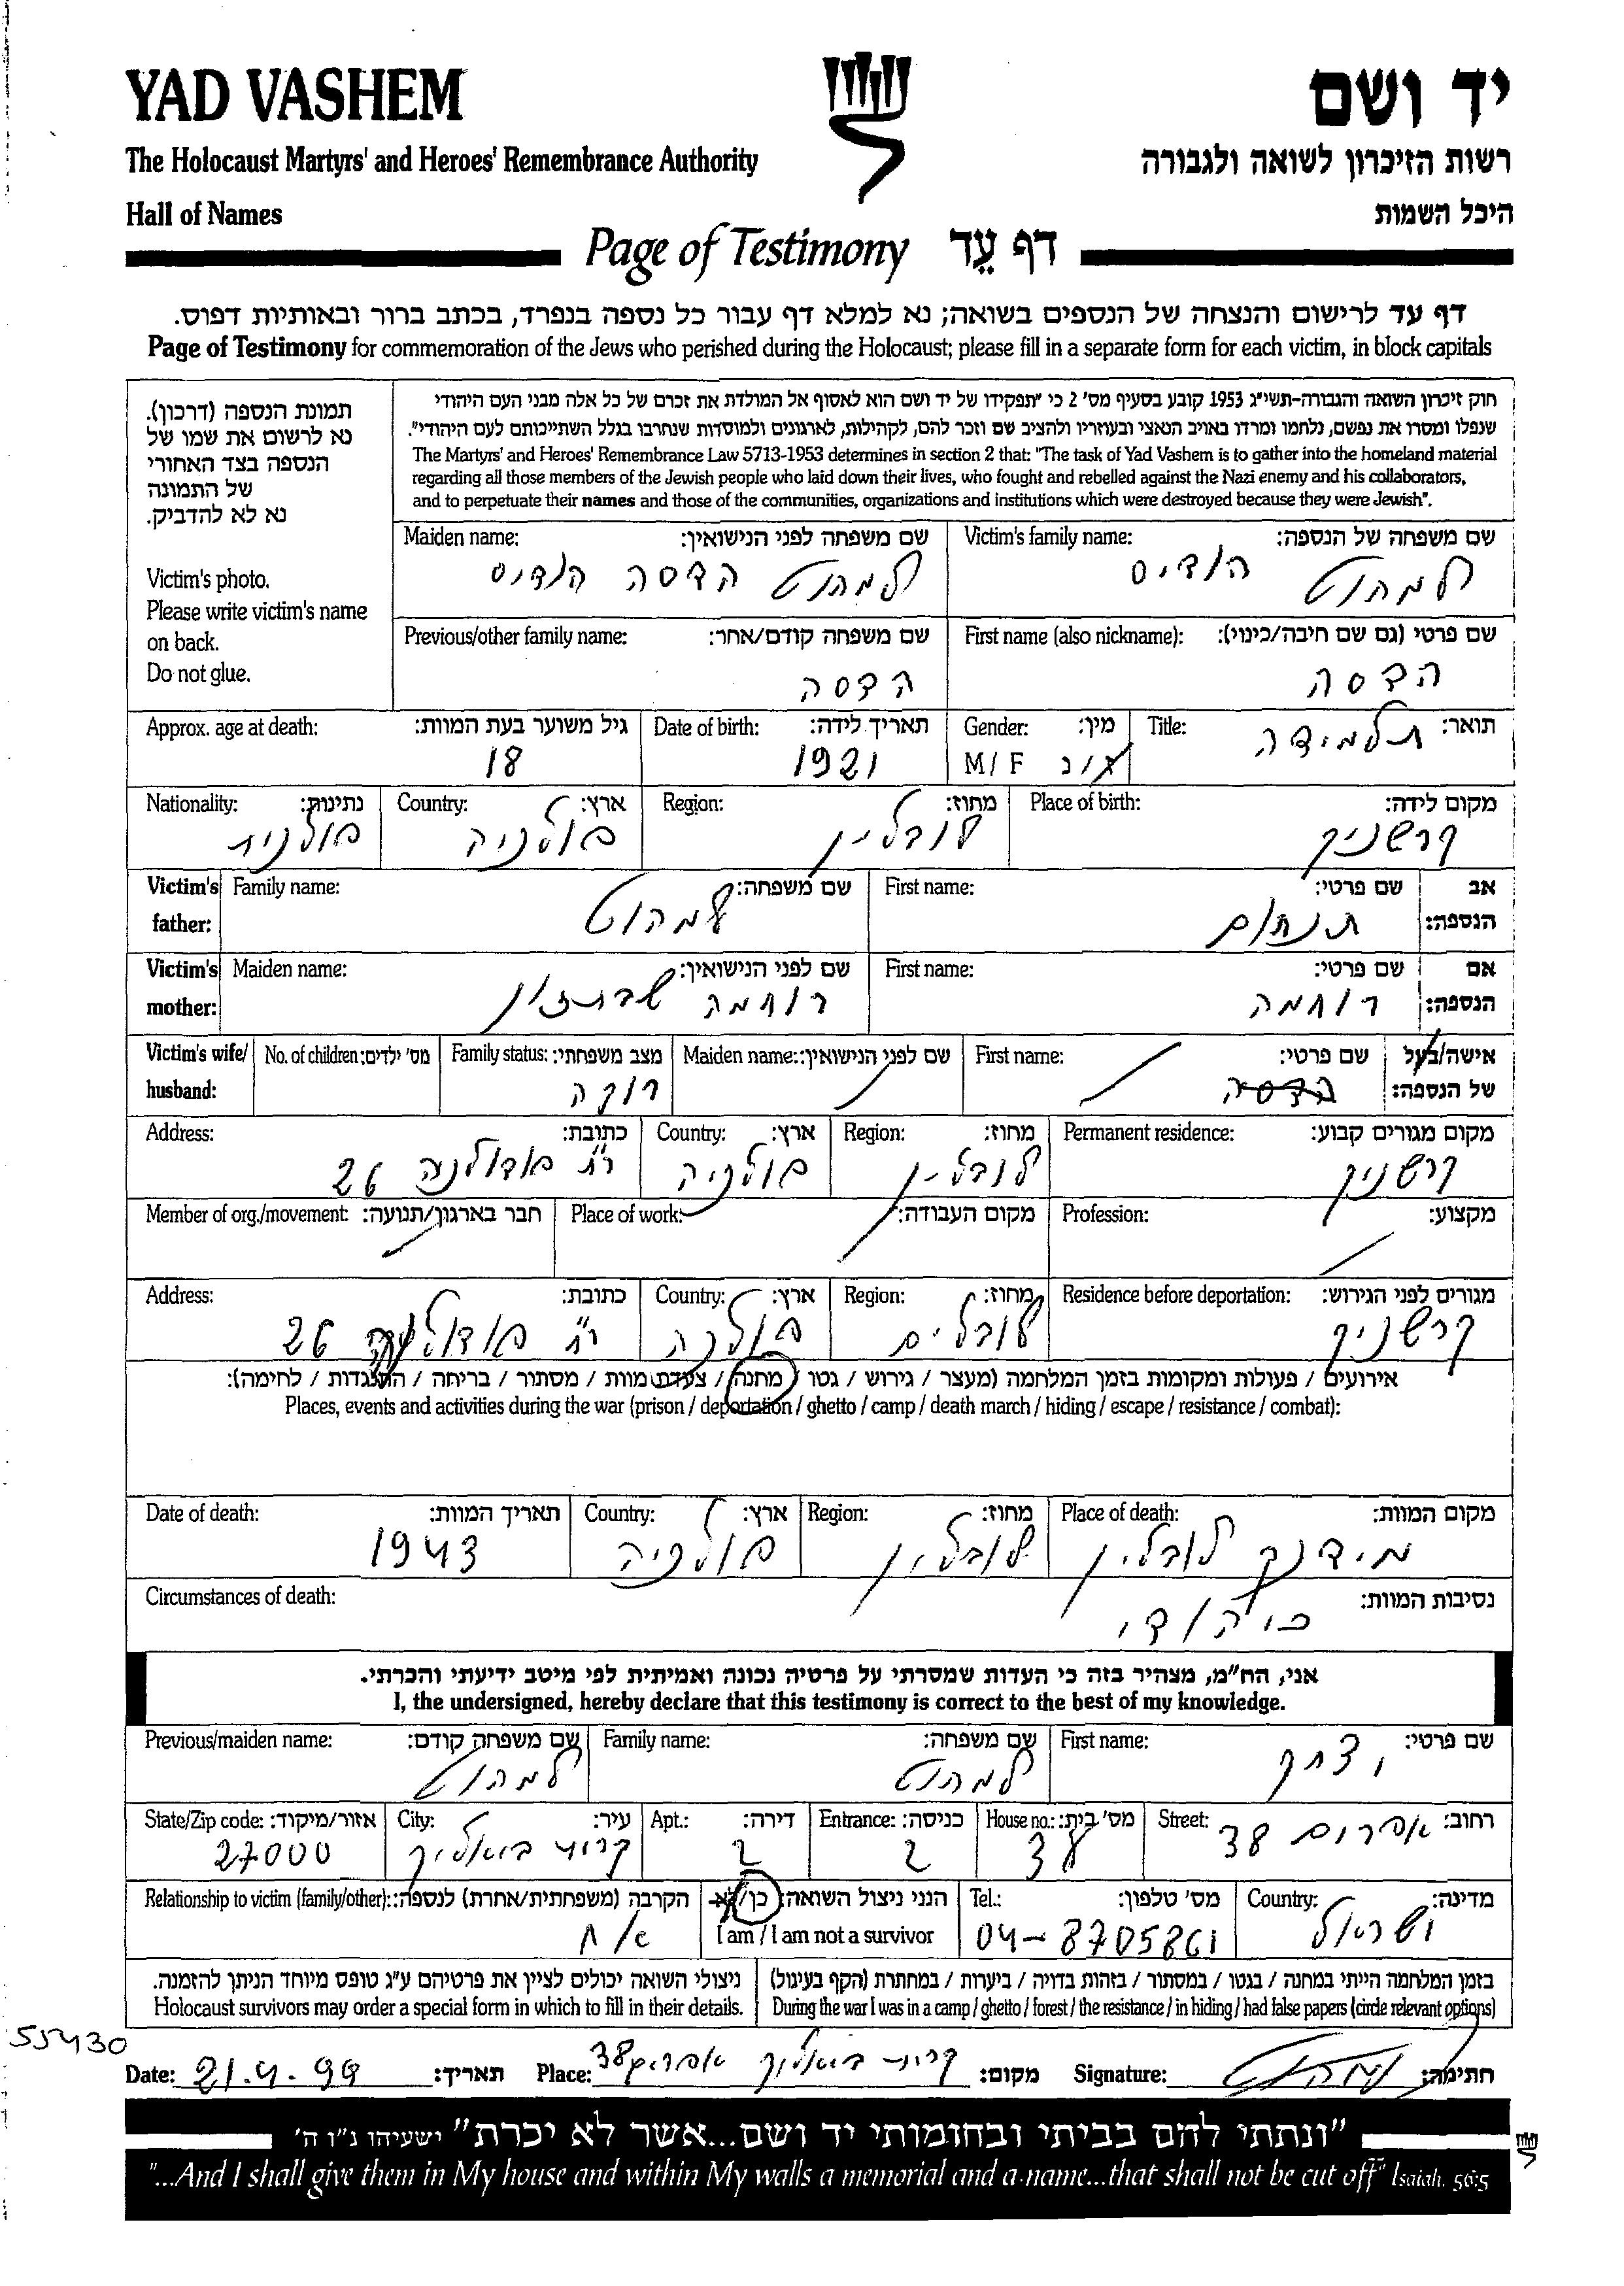 YAD VASHEM
יד ושם
The Holocaust Martyrs' and Heroes' Remembrance Authority
רשות הזיכרון לשואה ולגבורה
Hall of Names
היכל השמות
Page of Testimony דף עֵד
דף עד לרישום והנצחה של הנספים בשואה; נא למלא דף עבור כל נספה בנפרד, בכתב ברור ובאותיות דפוס.
Page of Testimony for commemoration of the Jews who perished during the Holocaust; please fill in a separate form for each victim, in block capitals
תמונת הנספה (דרכון).
נא לרשום את שמו של
הנספה בצד האחורי
של התמונה
נא לא להדביק.
Victim's photo.
Please write victim's name
on back.
Do not glue.
חוק זיכרון השואה והגבורה-תשי"ג 1953 קובע בסעיף מס' 2 כי "תפקידו של יד ושם הוא לאסוף אל המולדת את זכרם של כל אלה מבני העם היהודי
שנפלו ומסרו את נפשם, נלחמו ומרדו באויב הנאצי ובעוזריו ולהציב שם וזכר להם, לקהילות, לארגונים ולמוסדות שנחרבו בגלל השתייכותם לעם היהודי".
The Martyrs' and Heroes' Remembrance Law 5713-1953 determines in section 2 that: "The task of Yad Vashem is to gather into the homeland material
regarding all those members of the Jewish people who laid down their lives, who fought and rebelled against the Nazi enemy and his collaborators,
and to perpetuate their names and those of the communities, organizations and institutions which were destroyed because they were Jewish".
Victim's family name: שם משפחה של הנספה:
למהוט הודיס
Maiden name: שם משפחה לפני הנישואין:
למהוט הדסה הודיס
First name (also nickname): שם פרטי (גם שם חיבה/כינוי):
הדסה
Previous/other family name: שם משפחה קודם/אחר:
הדסה
Title: תואר: תלמידה
Gender: מין:
M / F ז/נ
Date of birth: תאריך לידה:
1921
Approx. age at death: גיל משוער בעת המוות:
18
Place of birth: מקום לידה:
קרשניק
Region: מחוז:
לובלין
Country: ארץ:
פולניה
Nationality: נתינות:
פולנית
אב הנספה: שם פרטי: First name:
תנחום
Victim's father: Family name: שם משפחה:
למהוט
אם הנספה: שם פרטי: First name:
רוחמה
Victim's mother: Maiden name: שם לפני הנישואין:
רוחמה
אישה/בעל של הנספה: שם פרטי: First name:
הדסה
Maiden name: שם לפני הנישואין:
Family status: מצב משפחתי:
רווקה
No. of children: מס' ילדים:
Victim's wife/ husband:
Permanent residence: מקום מגורים קבוע:
קרשניק
Region: מחוז:
לובלין
Country: ארץ:
פולניה
Address: כתובת:
26
Profession: מקצוע:
Place of work: מקום העבודה:
Member of org./movement: חבר בארגון/תנועה:
Residence before deportation: מגורים לפני הגירוש:
קרשניק
Region: מחוז:
לובלים
Country: ארץ:
פולנה
Address: כתובת:
26
אירועים / פעולות ומקומות בזמן המלחמה (מעצר / גירוש / גטו / מחנה / צעדת מוות / מסתור / בריחה / התנגדות / לחימה):
Places, events and activities during the war (prison / deportation / ghetto / camp / death march / hiding / escape / resistance / combat):
Place of death: מקום המוות:
מידנק לובלין
Region: מחוז:
לובלין
Country: ארץ:
פולניה
Date of death: תאריך המוות:
1943
Circumstances of death: נסיבות המוות:
אני, הח"מ, מצהיר בזה כי העדות שמסרתי על פרטיה נכונה ואמיתית לפי מיטב ידיעתי והכרתי.
I, the undersigned, hereby declare that this testimony is correct to the best of my knowledge.
First name: שם פרטי:
יצחק
Family name: שם משפחה:
למהוט
Previous/maiden name: שם משפחה קודם:
למהוט
Street: רחוב: אפרים 38
House no.: מס' בית:
38
Entrance: כניסה:
2
Apt.: דירה:
2
City: עיר:
קרית ביאליק
State/Zip code: אזור/מיקוד:
27000
Country: מדינה:
ישראל
Tel.: מס' טלפון:
04-8705861
הנני ניצול השואה: כן/לא
I am / I am not a survivor
Relationship to victim (family/other): הקרבה (משפחתית/אחרת) לנספה:
אח
בזמן המלחמה הייתי במחנה / בגטו / במסתור / בזהות בדויה / ביערות / במחתרת (הקף בעיגול)
During the war I was in a camp / ghetto / forest / the resistance / in hiding / had false papers (circle relevant options)
ניצולי השואה יכולים לציין את פרטיהם ע"ג טופס מיוחד הניתן להזמנה.
Holocaust survivors may order a special form in which to fill in their details.
55430
Date: 21.4.99 תאריך: Place: קרית ביאליק אפרים 38 מקום: Signature: למהוט חתימה:
"ונתתי להם בביתי ובחומותי יד ושם...אשר לא יכרת" ישעיהו נ"ו ה'
"...And I shall give them in My house and within My walls a memorial and a name...that shall not be cut off" Isaiah. 56:5